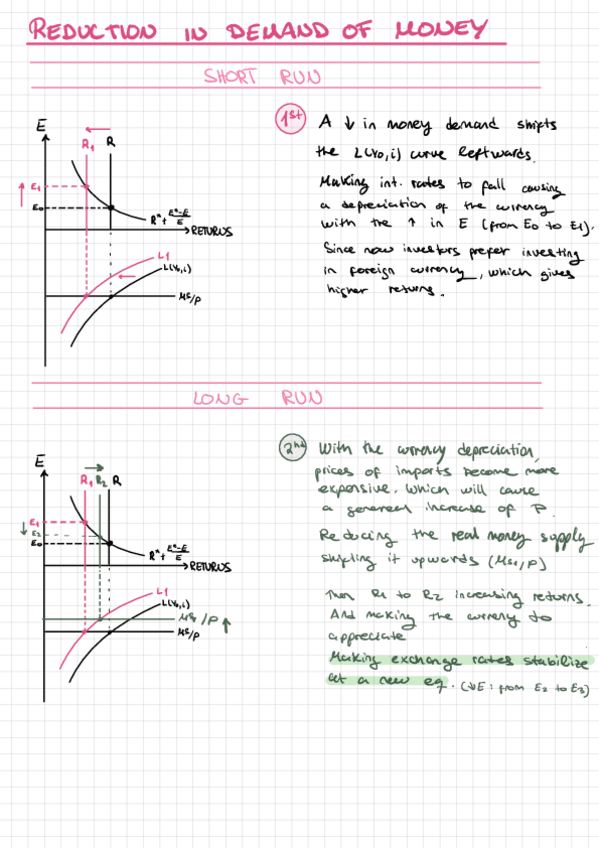 REDUCTION IN DEMAND OF MONEY
SHORT RUN
E
R1
R
E1
E0
R* + (Eᵉ-E)/E
RETURNS
L1
L(Y0,i)
MS/P
1st
A ↓ in money demand shifts
the L(Y0,i) curve leftwards.
Making int. rates to fall causing
a depreciation of the currency
with the ↑ in E (from E0 to E1).
Since now investors prefer investing
in foreign currency, which gives
higher returns.
LONG RUN
E
R1
R2
R
E1
E2
E0
R* + (Eᵉ-E)/E
RETURNS
L1
L(Y0,i)
MS1/P ↑
MS/P
2nd
With the currency depreciation,
prices of imports become more
expensive. Which will cause
a general increase of P.
Reducing the real money supply
shifting it upwards (MS1/P)
Then R1 to R2 increasing returns.
And making the currency to
appreciate
Making exchange rates stabilize
at a new eq. (↓E: from E2 to E3)